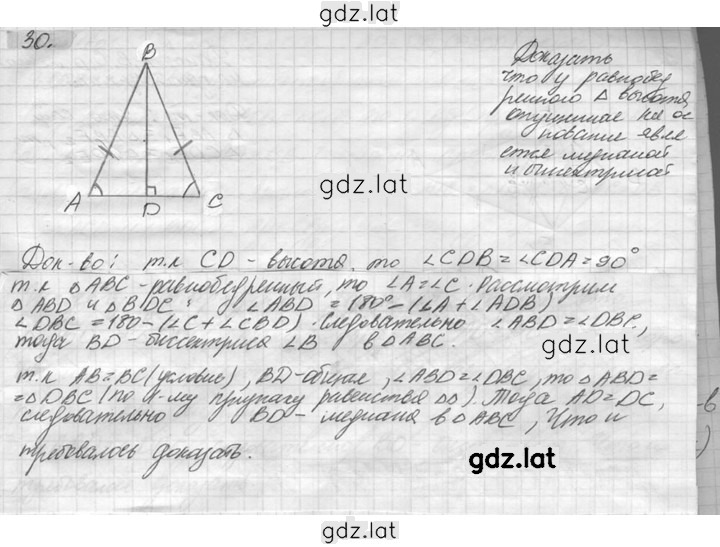 gdz.lat
30.
B
A
D
C
Доказать
что у равнобед
ренного Δ высота
опущенная на ос
нование явля
ется медианой
и биссектрисой
gdz.lat
Док-во: т.к CD - высота, то ∠CDB=∠CDA=90°
т.к ΔABC - равнобедренный, то ∠A=∠C. Рассмотрим
ΔABD и ΔBDC: ∠ABD = 180°-(∠A+∠ADB)
∠DBC = 180-(∠C+∠CBD). Следовательно ∠ABD=∠DBC,
тогда BD - биссектриса ∠B в ΔABC.
gdz.lat
т.к AB=BC (условие), BD-общая, ∠ABD=∠DBC, то ΔABD=
=ΔDBC (по I-му признаку равенства ΔΔ). Тогда AD=DC,
следовательно BD - медиана в ΔABC, Что и
требовалось доказать.
gdz.lat
gdz.lat